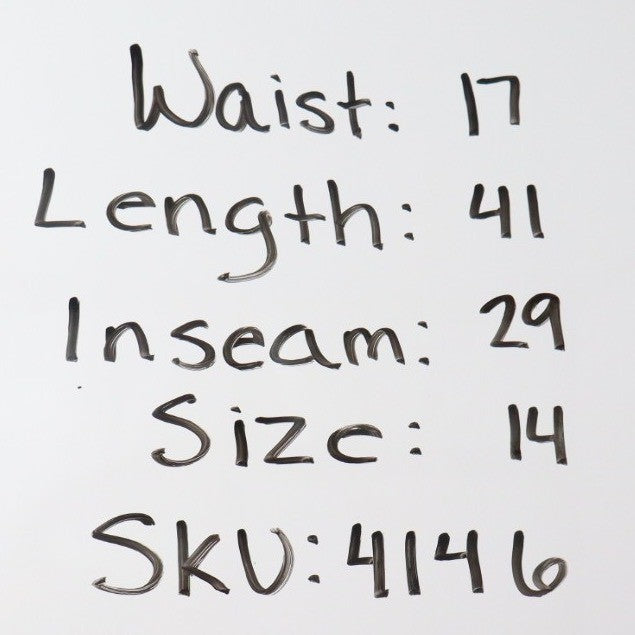 Waist: 17
Length: 41
Inseam: 29
Size: 14
SKU: 4146